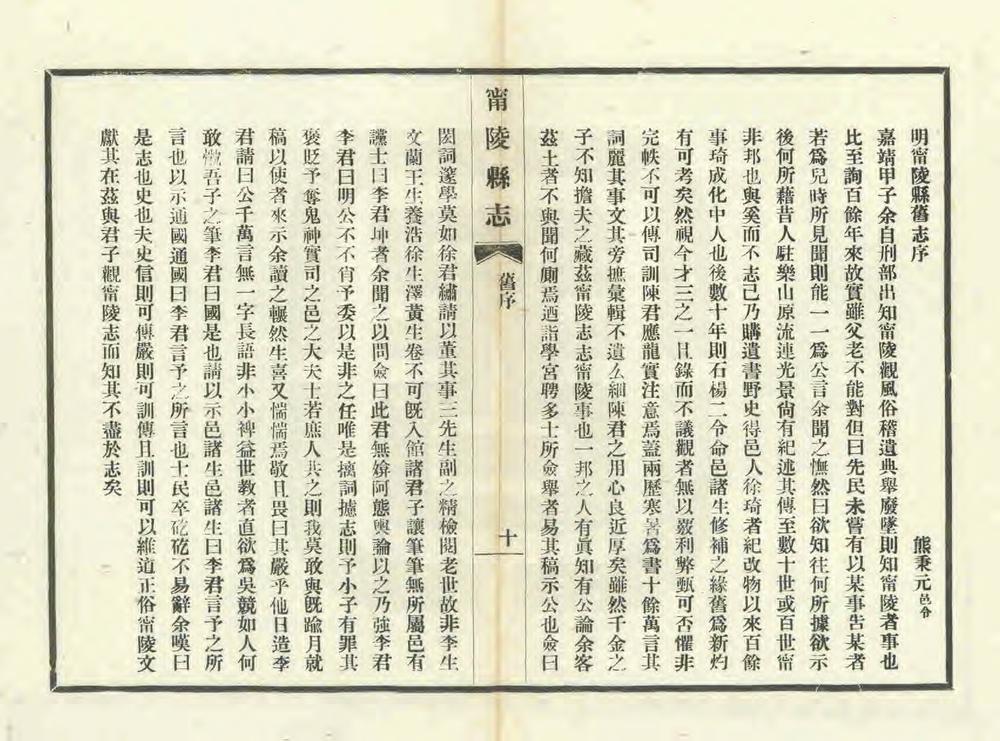 明甯陵縣舊志序
熊秉元邑令
嘉靖甲子余自刑部出知甯陵觀風俗稽遺典舉廢墜則知甯陵者事也
比至詢百餘年來故實雖父老不能對但曰先民未嘗有以某事告某者
若爲兒時所見聞則能一一爲公言余聞之憮然曰欲知往何所據欲示
後何所藉昔人駐樂山原流連光景尙有紀述其傳至數十世或百世甯
非邦也與奚而不志已乃購遺書野史得邑人徐琦者紀改物以來百餘
事琦成化中人也後數十年則石楊二令命邑諸生修補之緣舊爲新灼
有可考矣然視今才三之一且錄而不議觀者無以覈利弊甄可否懼非
完帙不可以傳司訓陳君應龍實注意焉蓋兩歷寒暑爲書十餘萬言其
詞麗其事文其旁摭彙輯不遺么細陳君之用心良近厚矣雖然千金之
子不知擔夫之藏茲甯陵志志甯陵事也一邦之人有眞知有公論余客
茲土者不與聞何廁焉迺詣學宮聘多士所僉舉者易其稿示公也僉曰
甯陵縣志
舊序
十
閎詞邃學莫如徐君繡請以董其事三先生副之精檢閱老世故非李生
文蘭王生養浩徐生澤黃生卷不可旣入館諸君子讓筆筆無所屬邑有
讜士曰李君坤者余聞之以問僉曰此君無媕阿態輿論以之乃強李君
李君曰明公不不肖予委以是非之任唯是摛詞摅志則予小子有罪其
褒貶予奪鬼神實司之邑之大夫士若庶人共之則我莫敢與旣踰月就
稿以使者來示余讀之囅然生喜又惴惴焉敬且畏曰其嚴乎他日造李
君請曰公千萬言無一字長語非小小裨益世教者直欲爲吳競如人何
敢慚吾子之筆李君曰國是也請以示邑諸生邑諸生曰李君言予之所
言也以示通國通國曰李君言予之所言也士民卒矻矻不易辭余嘆曰
是志也史也夫史信則可傳嚴則可訓傳且訓則可以維道正俗甯陵文
獻其在茲與君子觀甯陵志而知其不盡於志矣